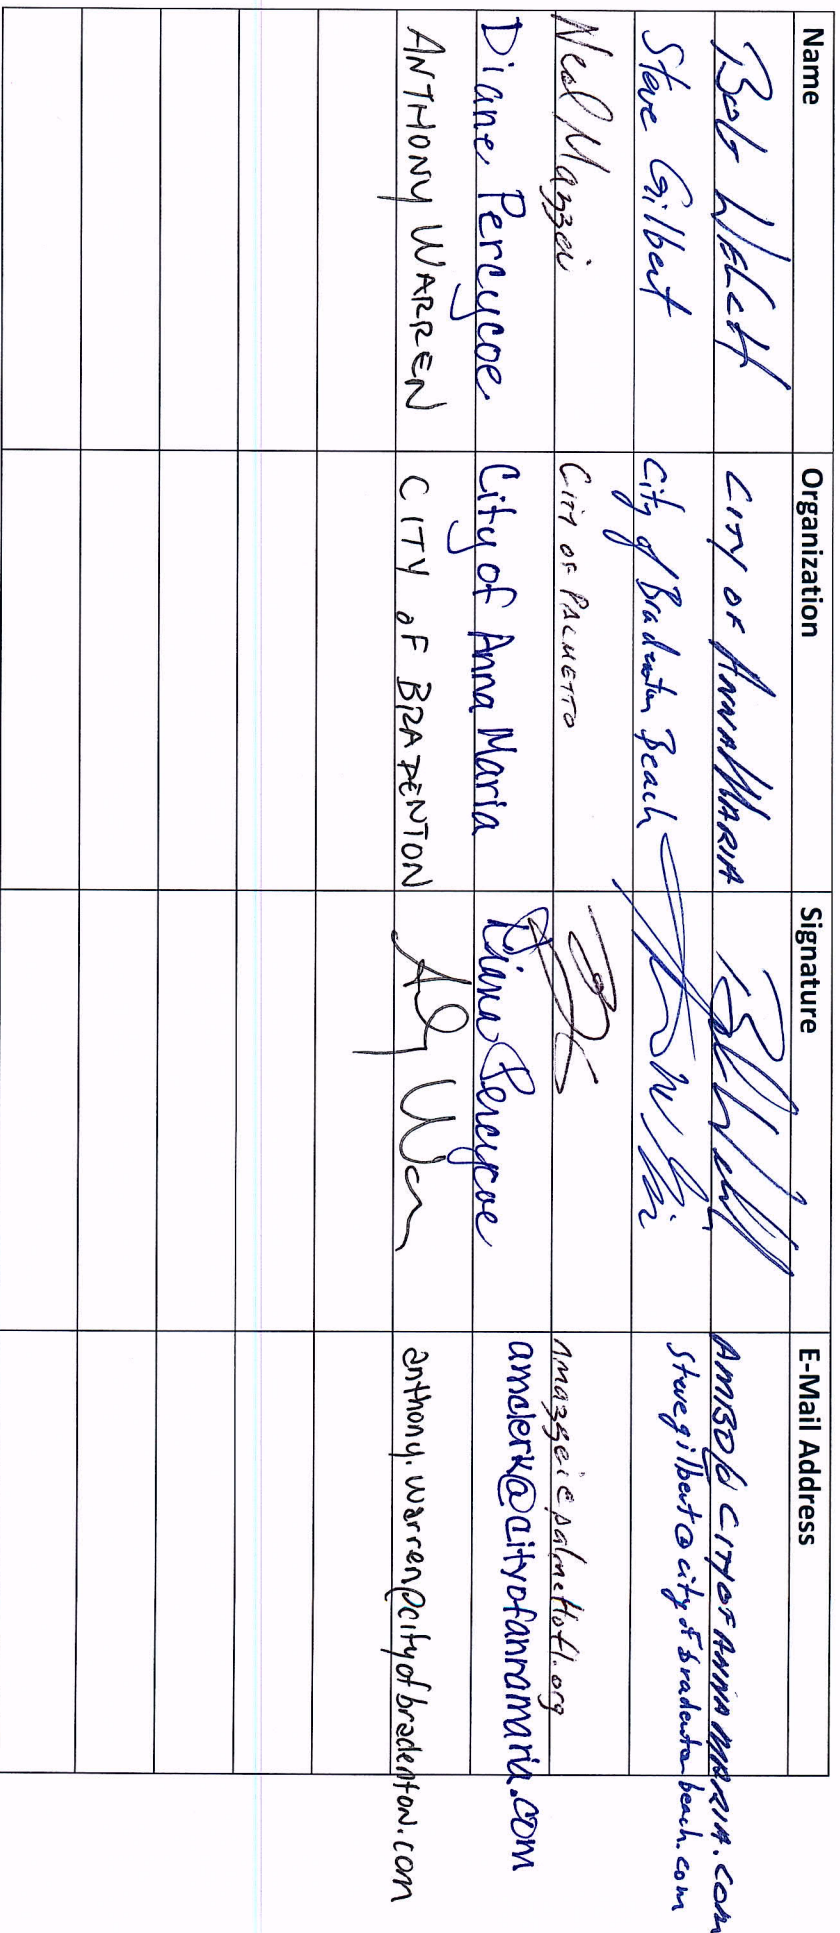 Name Organization Signature E-Mail Address
Bob WELCH CITY OF ANNA MARIA AMBO@CITYOFANNAMARIA.COM
Steve Gilbert City of Bradenton Beach stevegilbert@cityofbradentonbeach.com
Neal Mazzei CITY OF PALMETTO nmazzei@palmettofl.org
Diane Percycoe City of Anna Maria Diane Percycoe amclerk@cityofannamaria.com
ANTHONY WARREN CITY OF BRADENTON anthony.warren@cityofbradenton.com